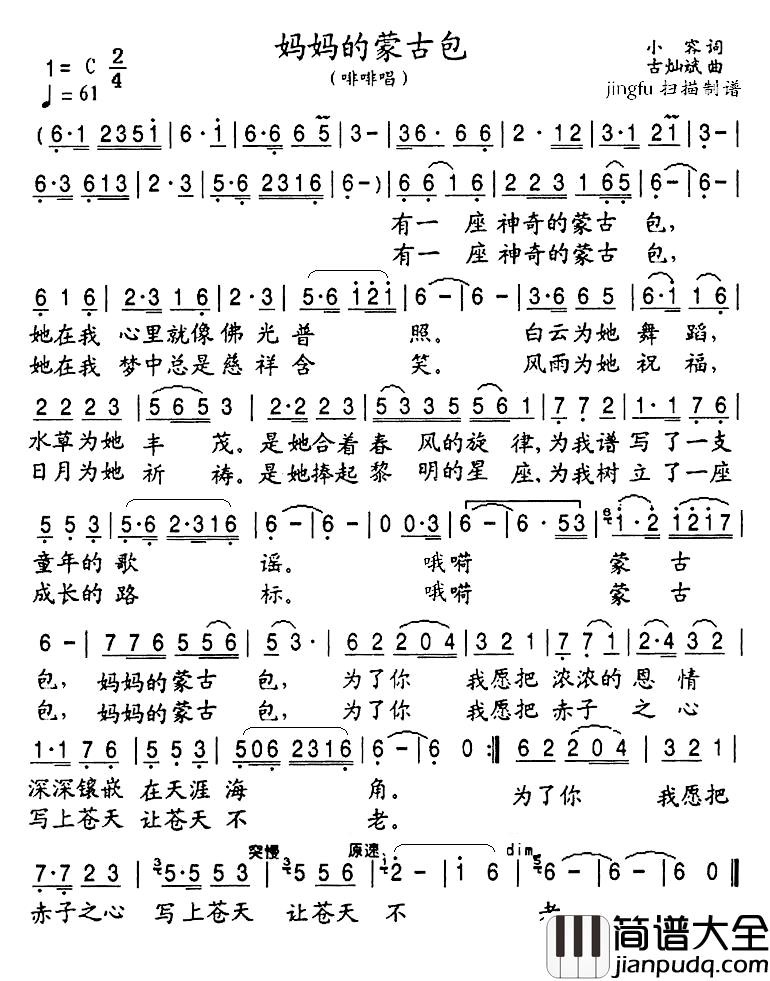 妈妈的蒙古包
（啡啡唱）
1= C 2/4
♩= 61
小容词
古灿斌曲
jingfu 扫描制谱
(6·1 2351|6·1|6·6 6 5|3-|36· 6 6|2· 12|3·1 21|3-|
6·3 613|2·3|5·6 2316|6-)|6 6 1 6|2 2 3 1 65|6-|6-|
有一 座 神奇的蒙古 包，
有一 座 神奇的蒙古 包，
6 1 6|2·3 1 6|2·3|5·6 121|6-|6-|3·6 6 5|6 1 1 6|
她在我 心里就像佛光普 照。 白云为她 舞 蹈，
她在我 梦中总是慈祥含 笑。 风雨为她 祝 福，
2 2 2 3|565 3|2·2 2 3|5335 561|7 7 2|1·1 7 6|
水草为她 丰 茂。是她合着春 风的旋 律，为我谱写了一支
日月为她 祈 祷。是她捧起黎 明的星 座，为我树立了一座
5 5 3|5·6 2·316|6-|6-|0 0·3|6-|6· 53|1·2 1217|
童年的歌 谣。 哦嗬 蒙 古
成长的路 标。 哦嗬 蒙 古
6-|776 556|5 3·|6 2 204|3 2 1|7 7 1|2·4 3 2|
包，妈妈的蒙古 包， 为了你 我愿把 浓浓的恩 情
包，妈妈的蒙古 包， 为了你 我愿把 赤子 之 心
1·1 7 6|5 5 5|506 2316|6-|6 0:‖6 2 204|3 2 1|
深深镶嵌 在天涯海 角。 为了你 我愿把
写上苍天 让苍天不 老。
突慢 原速 dim
7·7 2 3|5·5 5 3|5 5 5|2-|1 6|6-|6-|6 0‖
赤子之心 写上苍天 让苍天 不 老
简谱大全
jianpudq.com